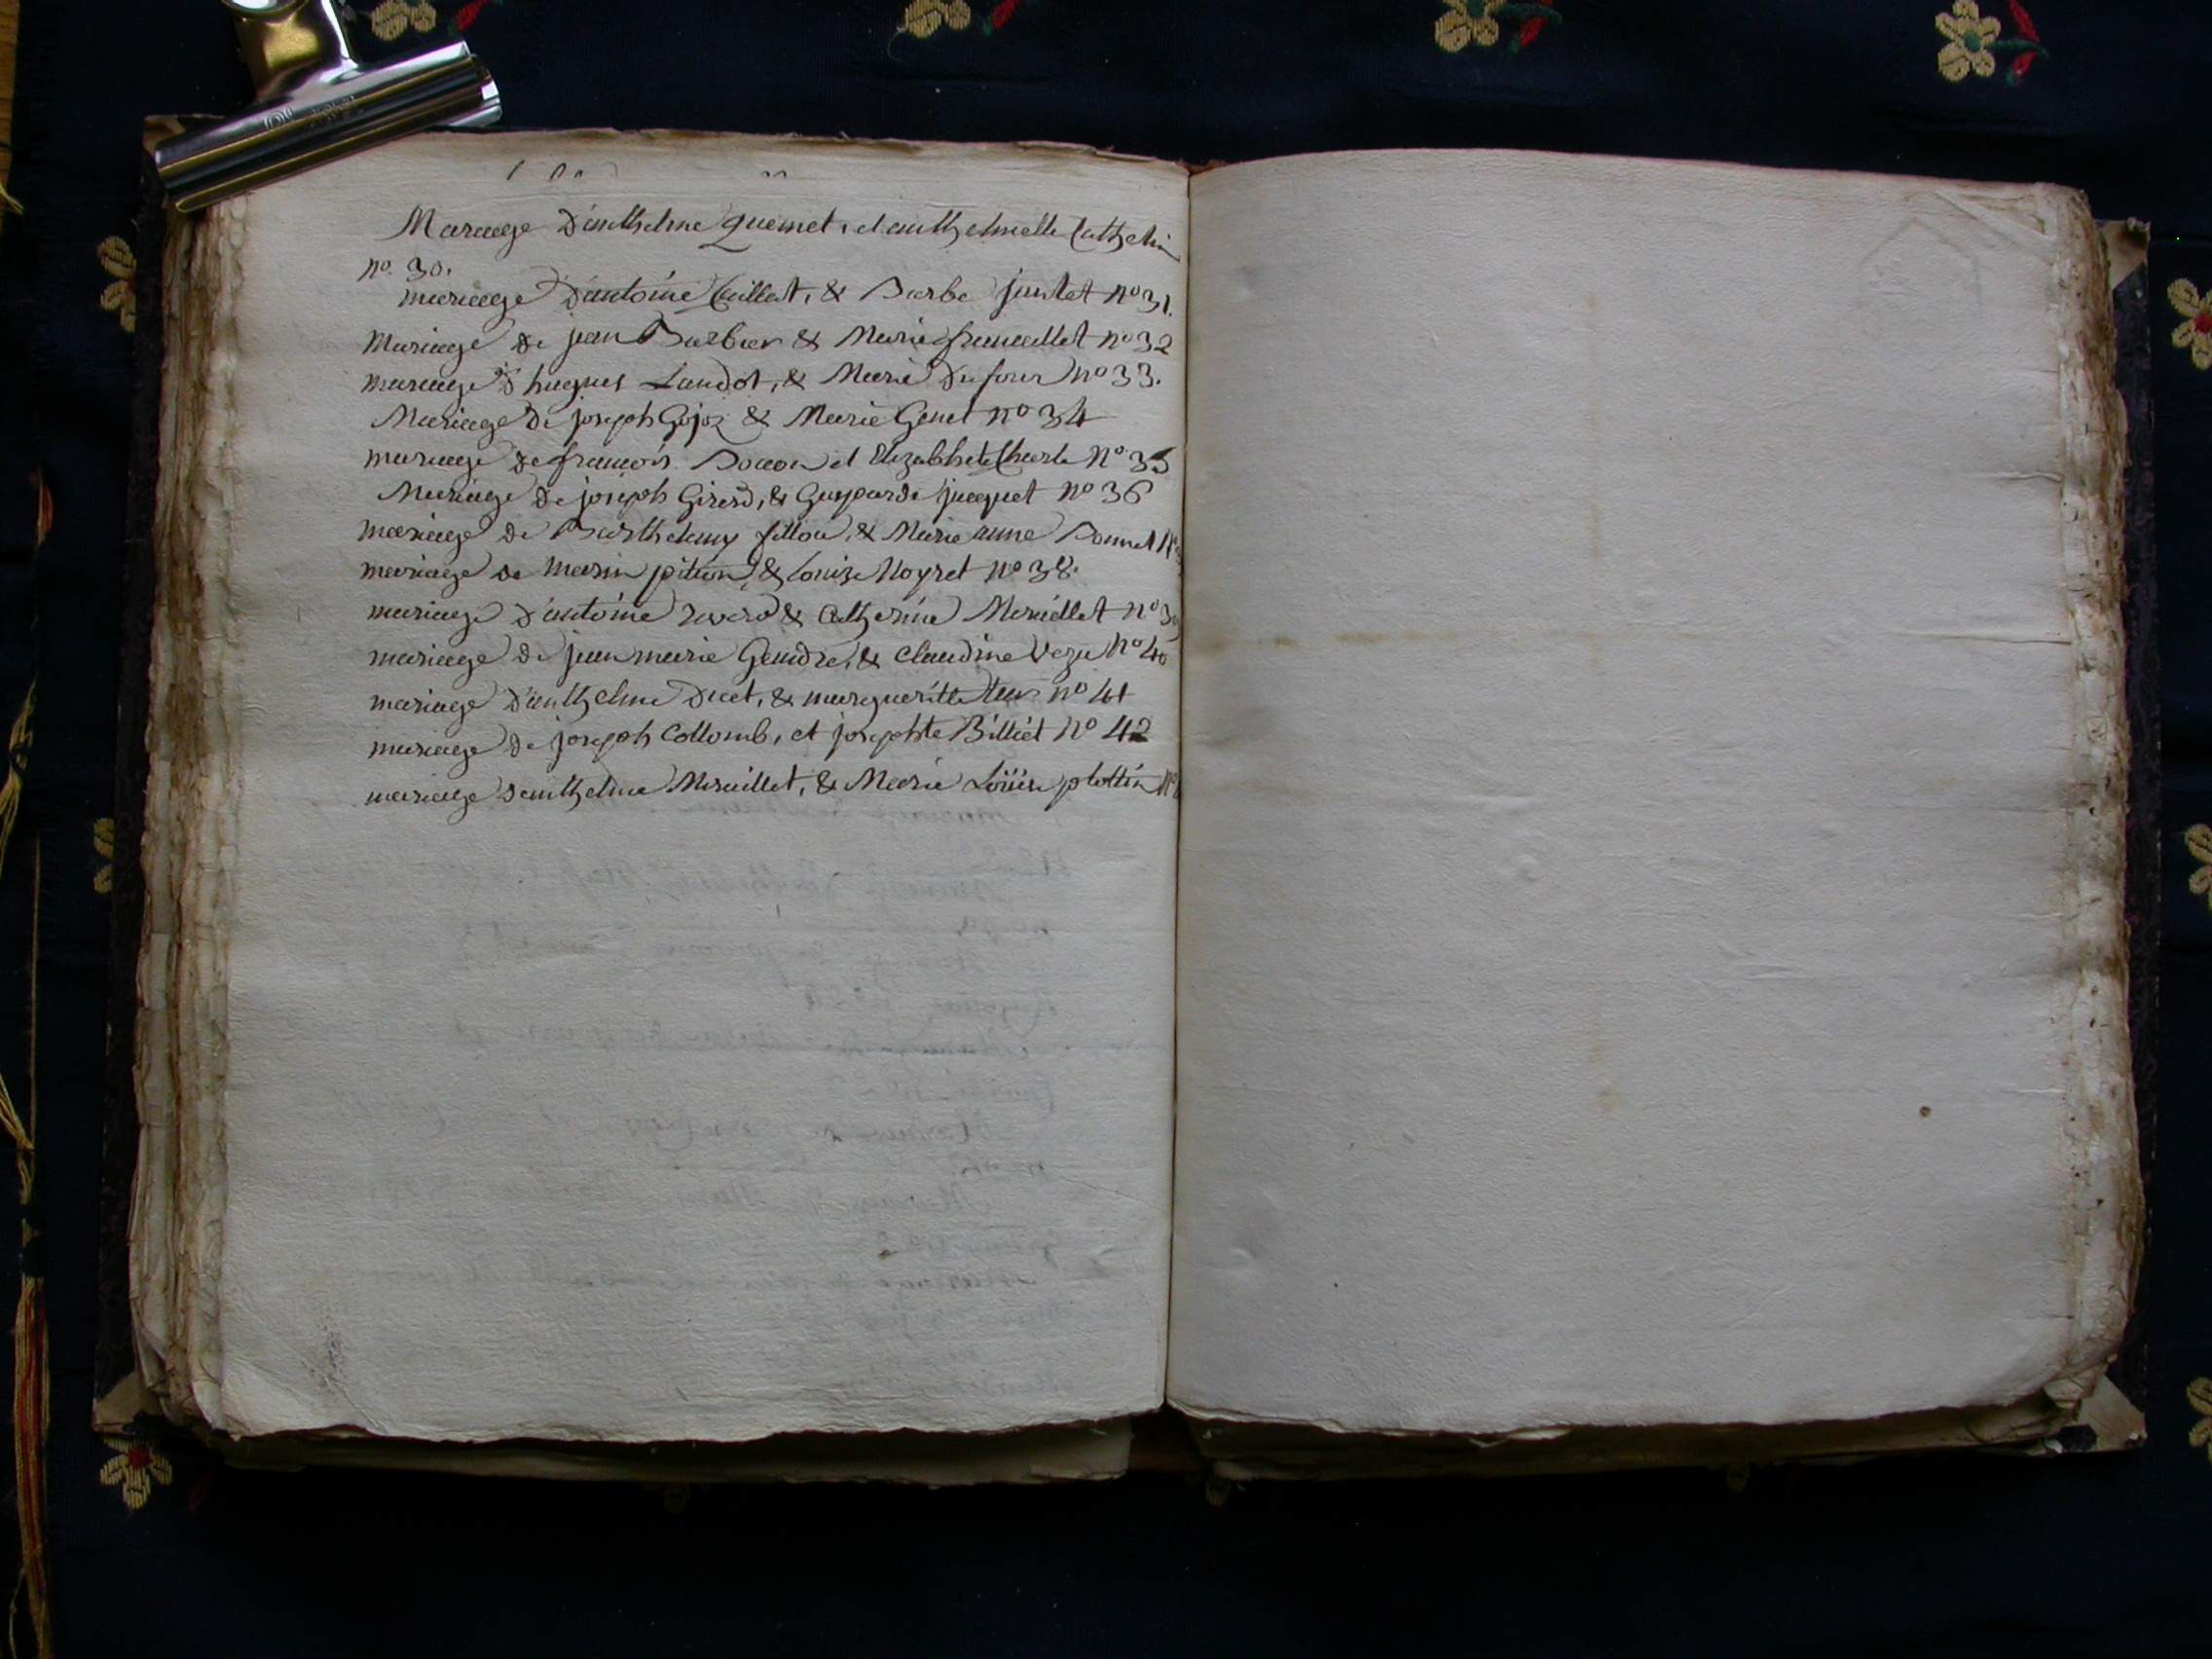 Mariage D'anthelme quemet, et anthelmette Cathelin
n°. 30.
mariage D'antoine Caillat, & Barbe jantet n° 31.
Mariage De jean Barbier & Marie francillet n° 32
mariage d'hugues Landot, & Marie Dufour n° 33.
Mariage De joseph Gojoz & Marie Genet n° 34
mariage de françois Bocon et Elizabhet Charle n° 35
Mariage De joseph Girerd, & Gasparde jacquet n° 36
mariage de Barthelemy fillion, & Marie anne Bonnet N°
mariage de Marin pition, & Louise Noyret n° 38.
mariage D'antoine & Catherine Meraillet n° 39
mariage de jean marie Gendre, & Claudine Vezu N° 40
mariage D'anthelme Ducet, & margueritte n° 41
mariage De joseph Collomb, et josephte Billiet N° 42
mariage d'anthelme Miraillet, & Marie Loüise plottin N°